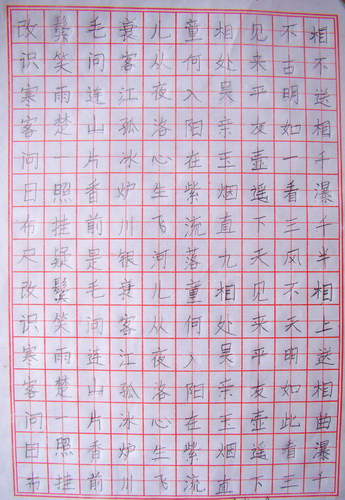 改鬓毛衰儿童相见不相
识笑问客从何处来古不
寒雨连江夜入吴平明送
客楚山孤洛阳亲友如相
问一片冰心在玉壶一千
日照香炉生紫烟遥看瀑
布挂前川飞流直下三千
尺疑是银河落九天风半
改鬓毛衰儿童相见不相
识笑问客从何处来天上
寒雨连江夜入吴平明送
客楚山孤洛阳亲友如相
问一片冰心在玉壶此曲
日照香炉生紫烟遥看瀑
布挂前川飞流直下三千